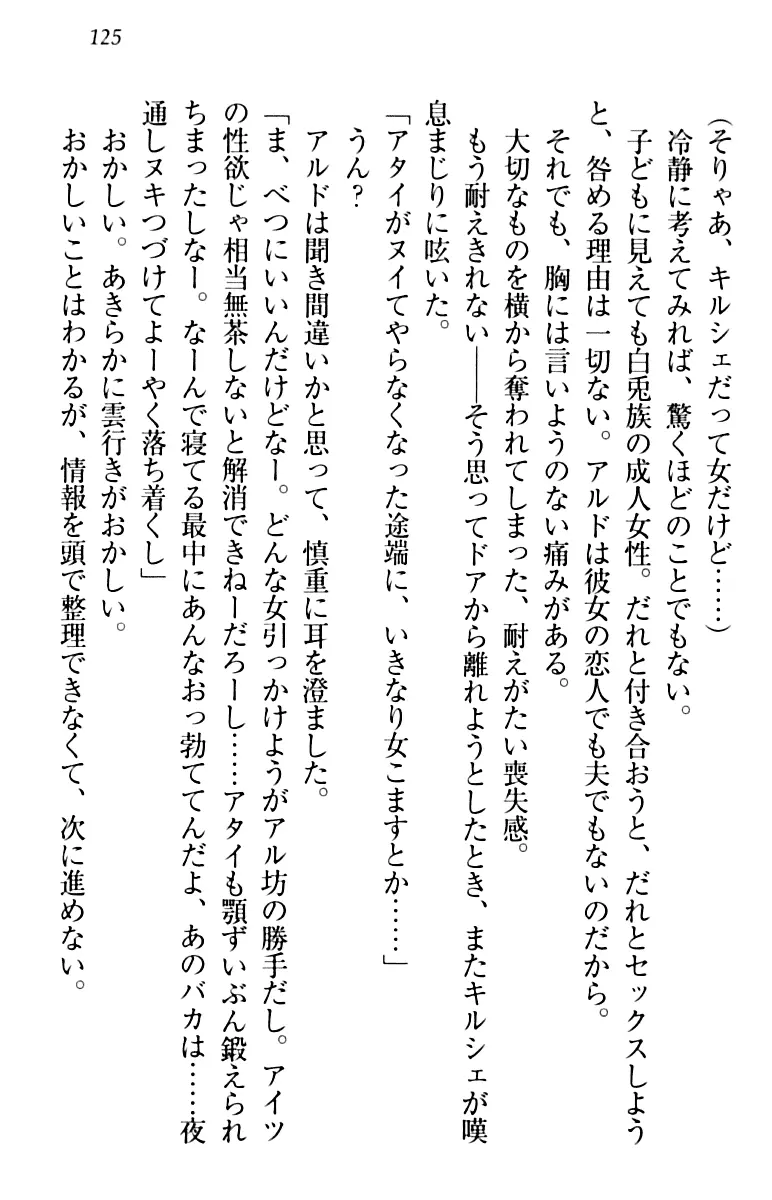 125
(そりゃあ、キルシェだって女だけど……)
冷静に考えてみれば、驚くほどのことでもない。
子どもに見えても白兎族の成人女性。だれと付き合おうと、だれとセックスしよう
と、咎める理由は一切ない。アルドは彼女の恋人でも夫でもないのだから。
それでも、胸には言いようのない痛みがある。
大切なものを横から奪われてしまった、耐えがたい喪失感。
もう耐えきれない――そう思ってドアから離れようとしたとき、またキルシェが嘆
息まじりに呟いた。
「アタイがヌイてやらなくなった途端に、いきなり女こますとか……」
うん?
アルドは聞き間違いかと思って、慎重に耳を澄ました。
「ま、べつにいいんだけどなー。どんな女引っかけようがアル坊の勝手だし。アイツ
の性欲じゃ相当無茶しないと解消できねーだろーし……アタイも顎ずいぶん鍛えられ
ちまったしなー。なーんで寝てる最中にあんなおっ勃ててんだよ、あのバカは……夜
通しヌキつづけてよーやく落ち着くし」
おかしい。あきらかに雲行きがおかしい。
おかしいことはわかるが、情報を頭で整理できなくて、次に進めない。